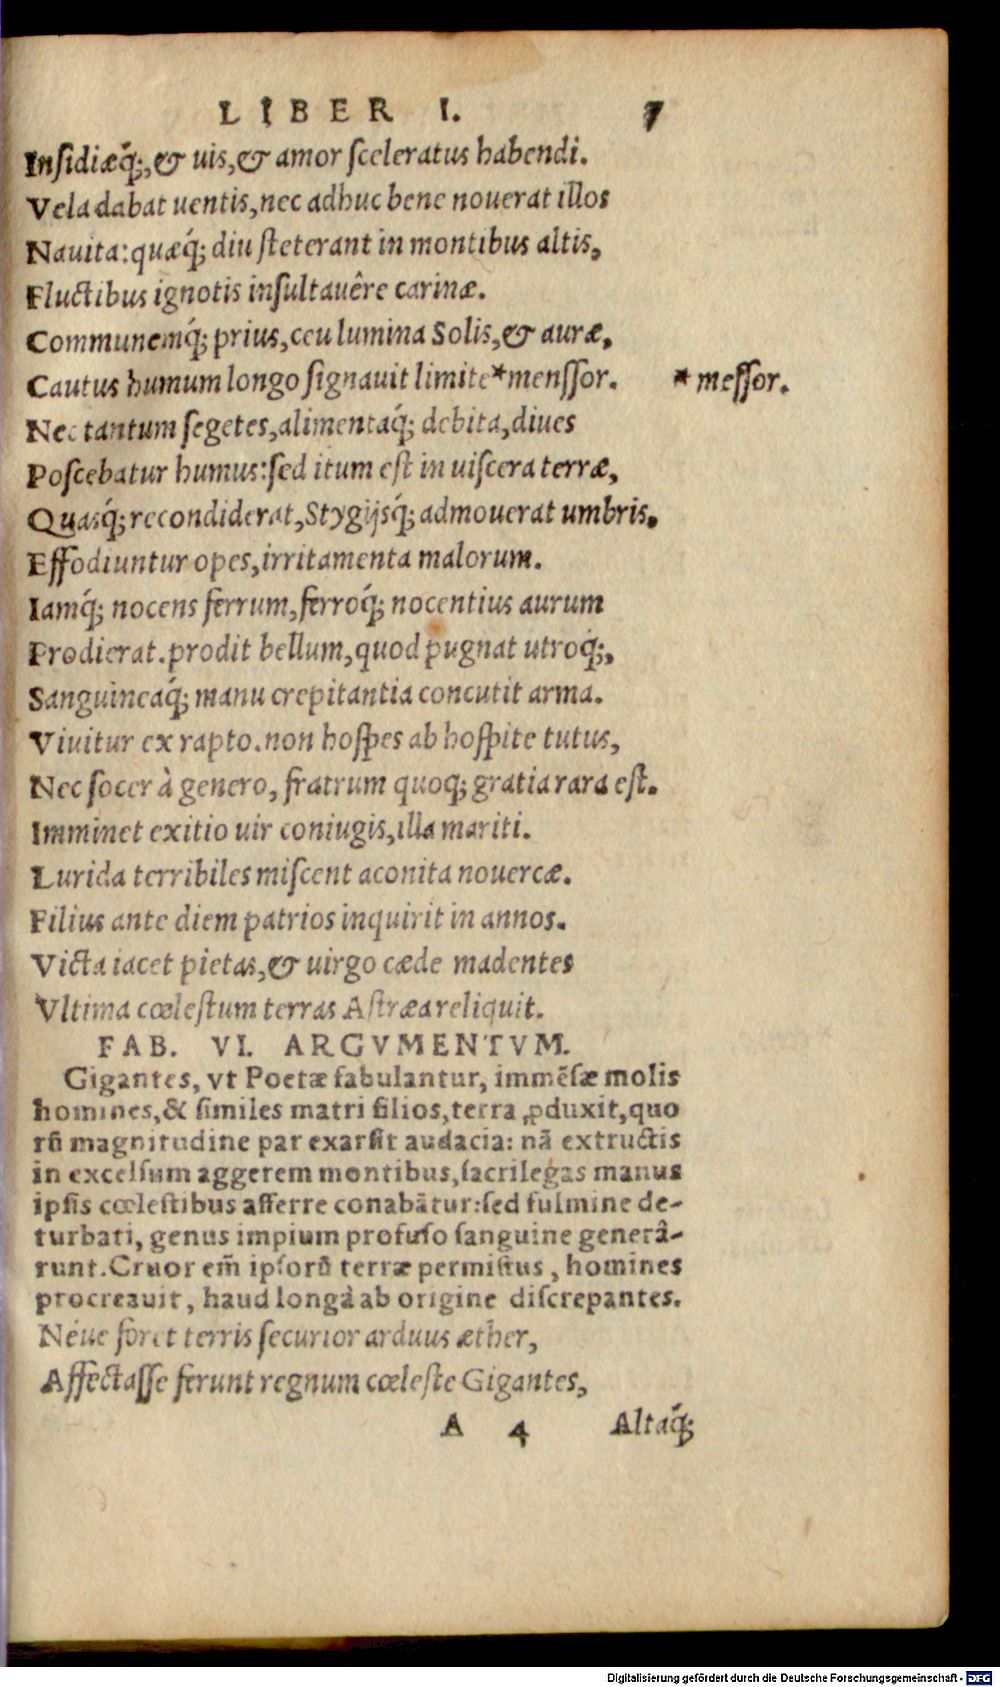 LIBER I. 7
Inſidiæq́;, & uis, & amor ſceleratus habendi.
Vela dabat uentis, nec adhuc bene nouerat illos
Nauita: quæq́; diu ſteterant in montibus altis,
Fluctibus ignotis inſultauêre carinæ.
Communemq́; prius, ceu lumina Solis, & auræ,
Cautus humum longo ſignauit limite *menſſor. *meſſor.
Nec tantum ſegetes, alimentaq́; debita, diues
Poſcebatur humus: ſed itum eſt in uiſcera terræ,
Quasq́; recondiderat, Stygijsq́; admouerat umbris.
Effodiuntur opes, irritamenta malorum.
Iamq́; nocens ferrum, ferroq́; nocentius aurum
Prodierat. prodit bellum, quod pugnat utroq́;,
Sanguineaq́; manu crepitantia concutit arma.
Viuitur ex rapto. non hoſpes ab hoſpite tutus,
Nec ſocer à genero, fratrum quoq; gratia rara eſt.
Imminet exitio uir coniugis, illa mariti.
Lurida terribiles miſcent aconita nouercæ.
Filius ante diem patrios inquirit in annos.
Victa iacet pietas, & uirgo cæde madentes
Vltima cœleſtum terras Aſtræa reliquit.
FAB. VI. ARGVMENTVM.
Gigantes, vt Poetæ fabulantur, immẽſæ molis
homines, & ſimiles matri filios, terra ꝓduxit, quo
rũ magnitudine par exarſit audacia: nã extructis
in excelſum aggerem montibus, ſacrilegas manus
ipſis cœleſtibus afferre conabãtur: ſed fulmine de-
turbati, genus impium profuſo ſanguine generâ-
runt. Cruor em̃ ipſorũ terræ permiſtus, homines
procreauit, haud longà ab origine diſcrepantes.
Néue foret terris ſecurior arduus æther,
Affectaſſe ferunt regnum cœleſte Gigantes,
A 4 Altaq́;
Digitalisierung gefördert durch die Deutsche Forschungsgemeinschaft - DFG